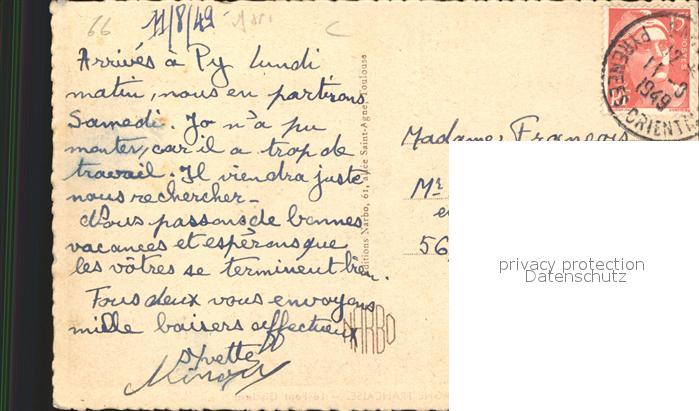 66 11/8/49
Arrivés à Py lundi
matin, nous en partirons
Samedi. Jo n'a pu
monter, car il a trop de
travail. Il viendra juste
nous rechercher -
Nous passons de bonnes
vacances et espérons que
les vôtres se terminent bien.
Tous deux vous envoyons
mille baisers affectueux
Yvette
Editions Narbo, 61, allée Saint-Agne, Toulouse
NARBO
PYRENEES-ORIENTALES
11 - 8
1949
Madame François
Mr
56
privacy protection
Datenschutz